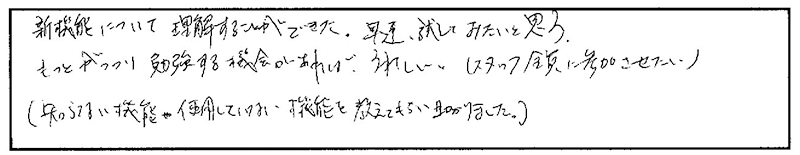 新機能について理解することができた。早速、試してみたいと思う。
もっとがっつり勉強する機会があれば、うれしい。(スタッフ全員に参加させたい)
(知らない機能や使用していない機能を教えてもらい助かりました。)